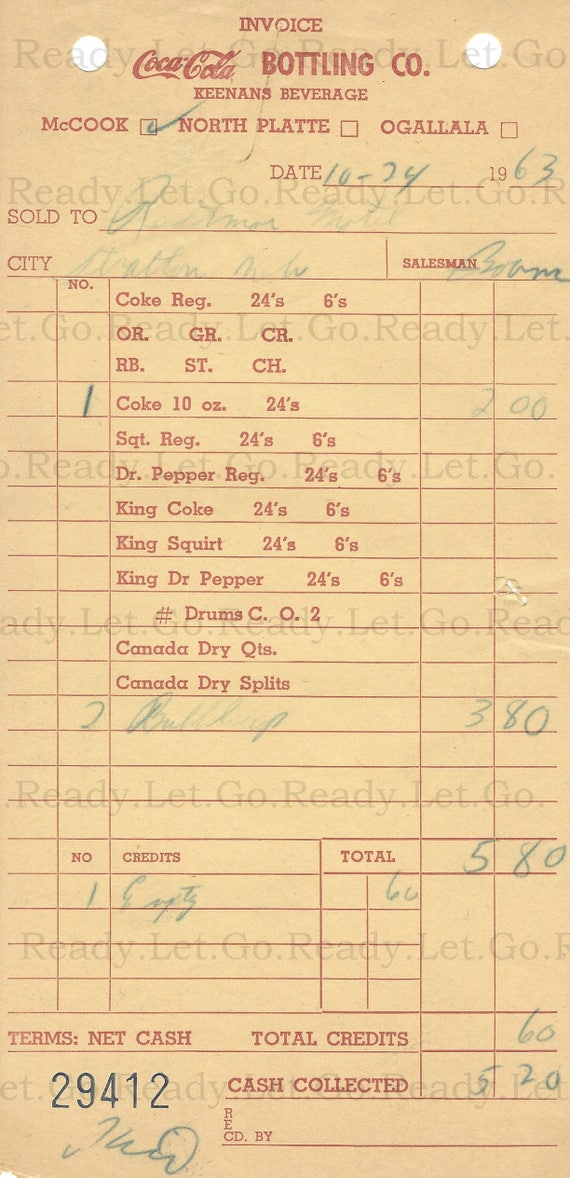 INVOICE
Coca-Cola BOTTLING CO.
KEENANS BEVERAGE
McCOOK NORTH PLATTE OGALLALA
DATE 10-24 1963
SOLD TO Motel
CITY Stratton Neb SALESMAN
NO.
Coke Reg. 24's 6's
OR. GR. CR.
RB. ST. CH.
1 Coke 10 oz. 24's 2 00
Sqt. Reg. 24's 6's
Dr. Pepper Reg. 24's 6's
King Coke 24's 6's
King Squirt 24's 6's
King Dr Pepper 24's 6's
# Drums C. O. 2
Canada Dry Qts.
Canada Dry Splits
2 Bubbleup 3 80
NO CREDITS TOTAL 5 80
1 Empty 60
TERMS: NET CASH TOTAL CREDITS 60
29412 CASH COLLECTED 5 20
RECD. BY
Ready.Let.Go.Ready.Let.Go.